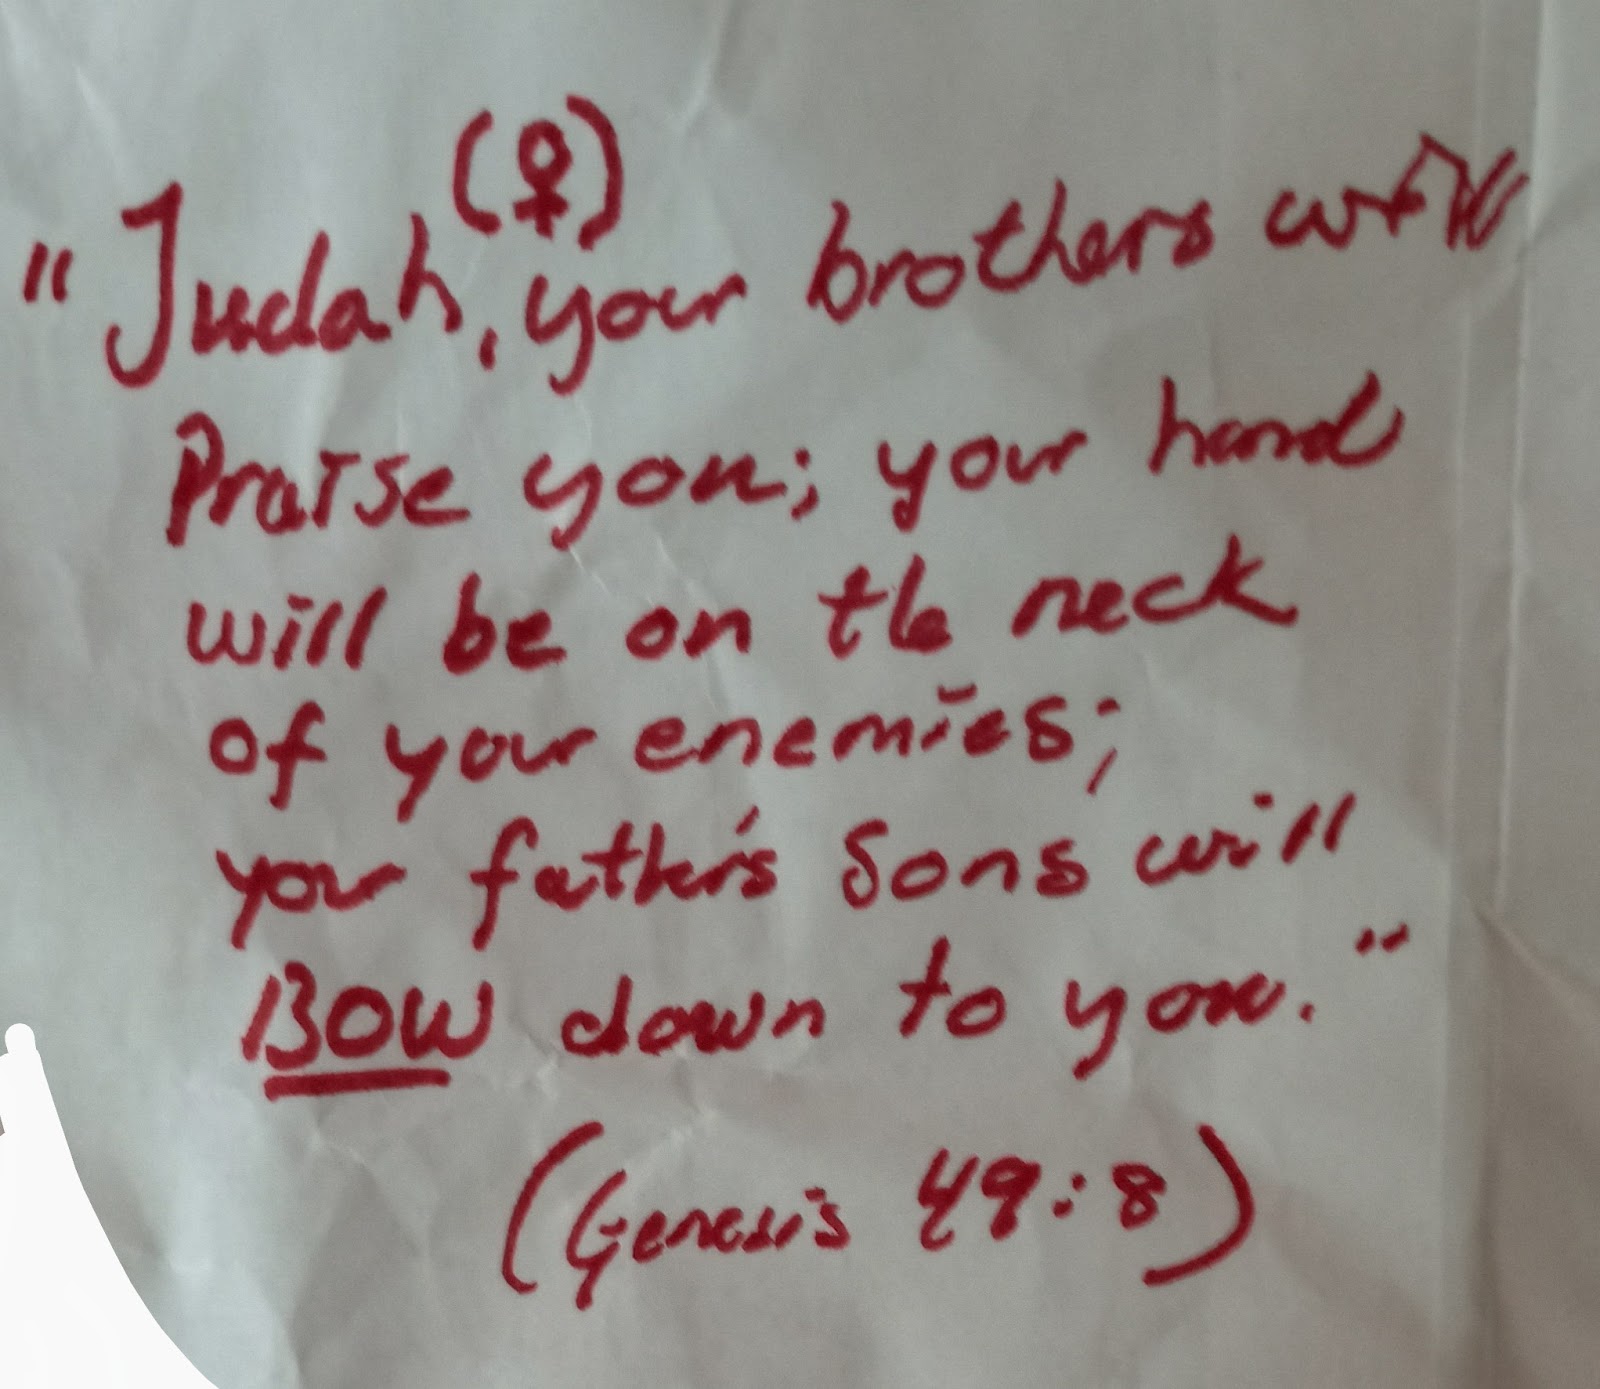 (♀)
"Judah, your brothers will
Praise you; your hand
will be on the neck
of your enemies;
your father's Sons will
BOW down to you."
(Genesis 49:8)